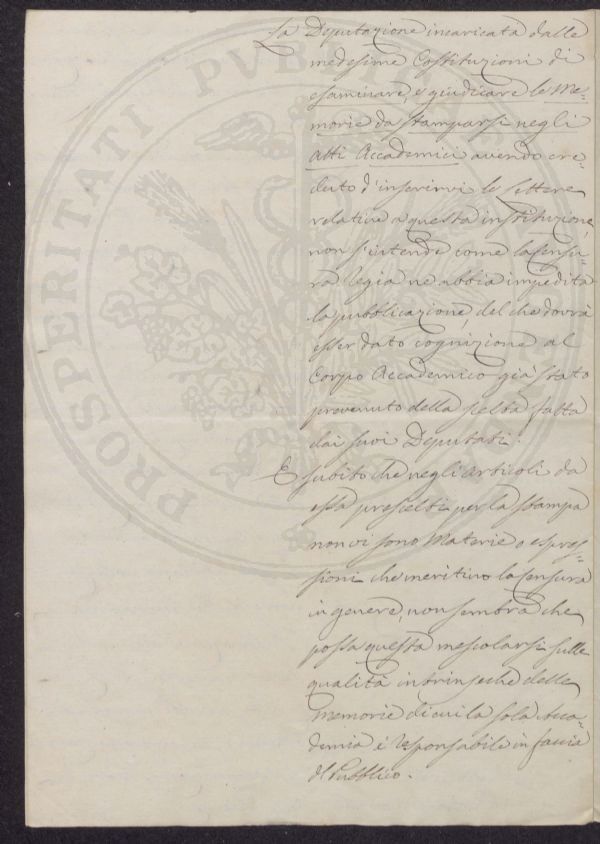 La Deputazione incaricata dalle
medesime Costituzioni di
esaminare, e giudicare le Me-
morie da stamparsi negli
Atti Accademici avendo cre-
duto d'inserirvi le lettere
relative a questa instituzione,
non s'intende come la Censu-
ra Regia ne abbia impedita
la pubblicazione del che dovrà
esser dato cognizione al
Corpo Accademico già stato
prevenuto della scelta fatta
dai suoi Deputati.
E subito che negli articoli da
essa prescelti per la stampa
non vi sono Materie o espres-
sioni che meritino la Censura
in genere, non sembra che
possa questa mescolarsi sulle
qualità intrinseche delle
Memorie di cui la sola Acca-
demia è responsabile in faccia
al Pubblico.
PROSPERITATI PVBLI